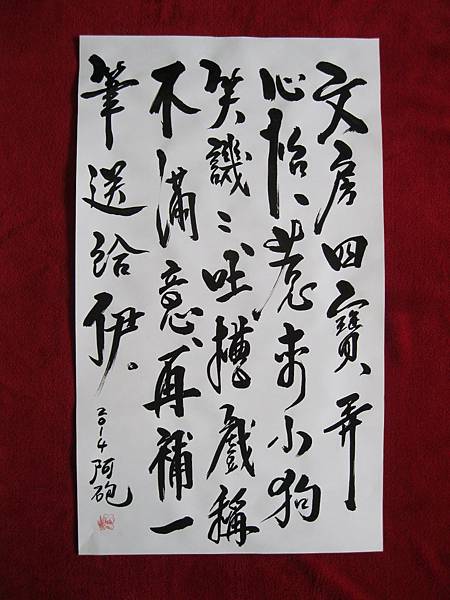 文房四寶弄
心怡、惹來小狗
笑譏〻、吐槽戲稱
不滿意、再補一
筆送給伊。
2014 阿砲